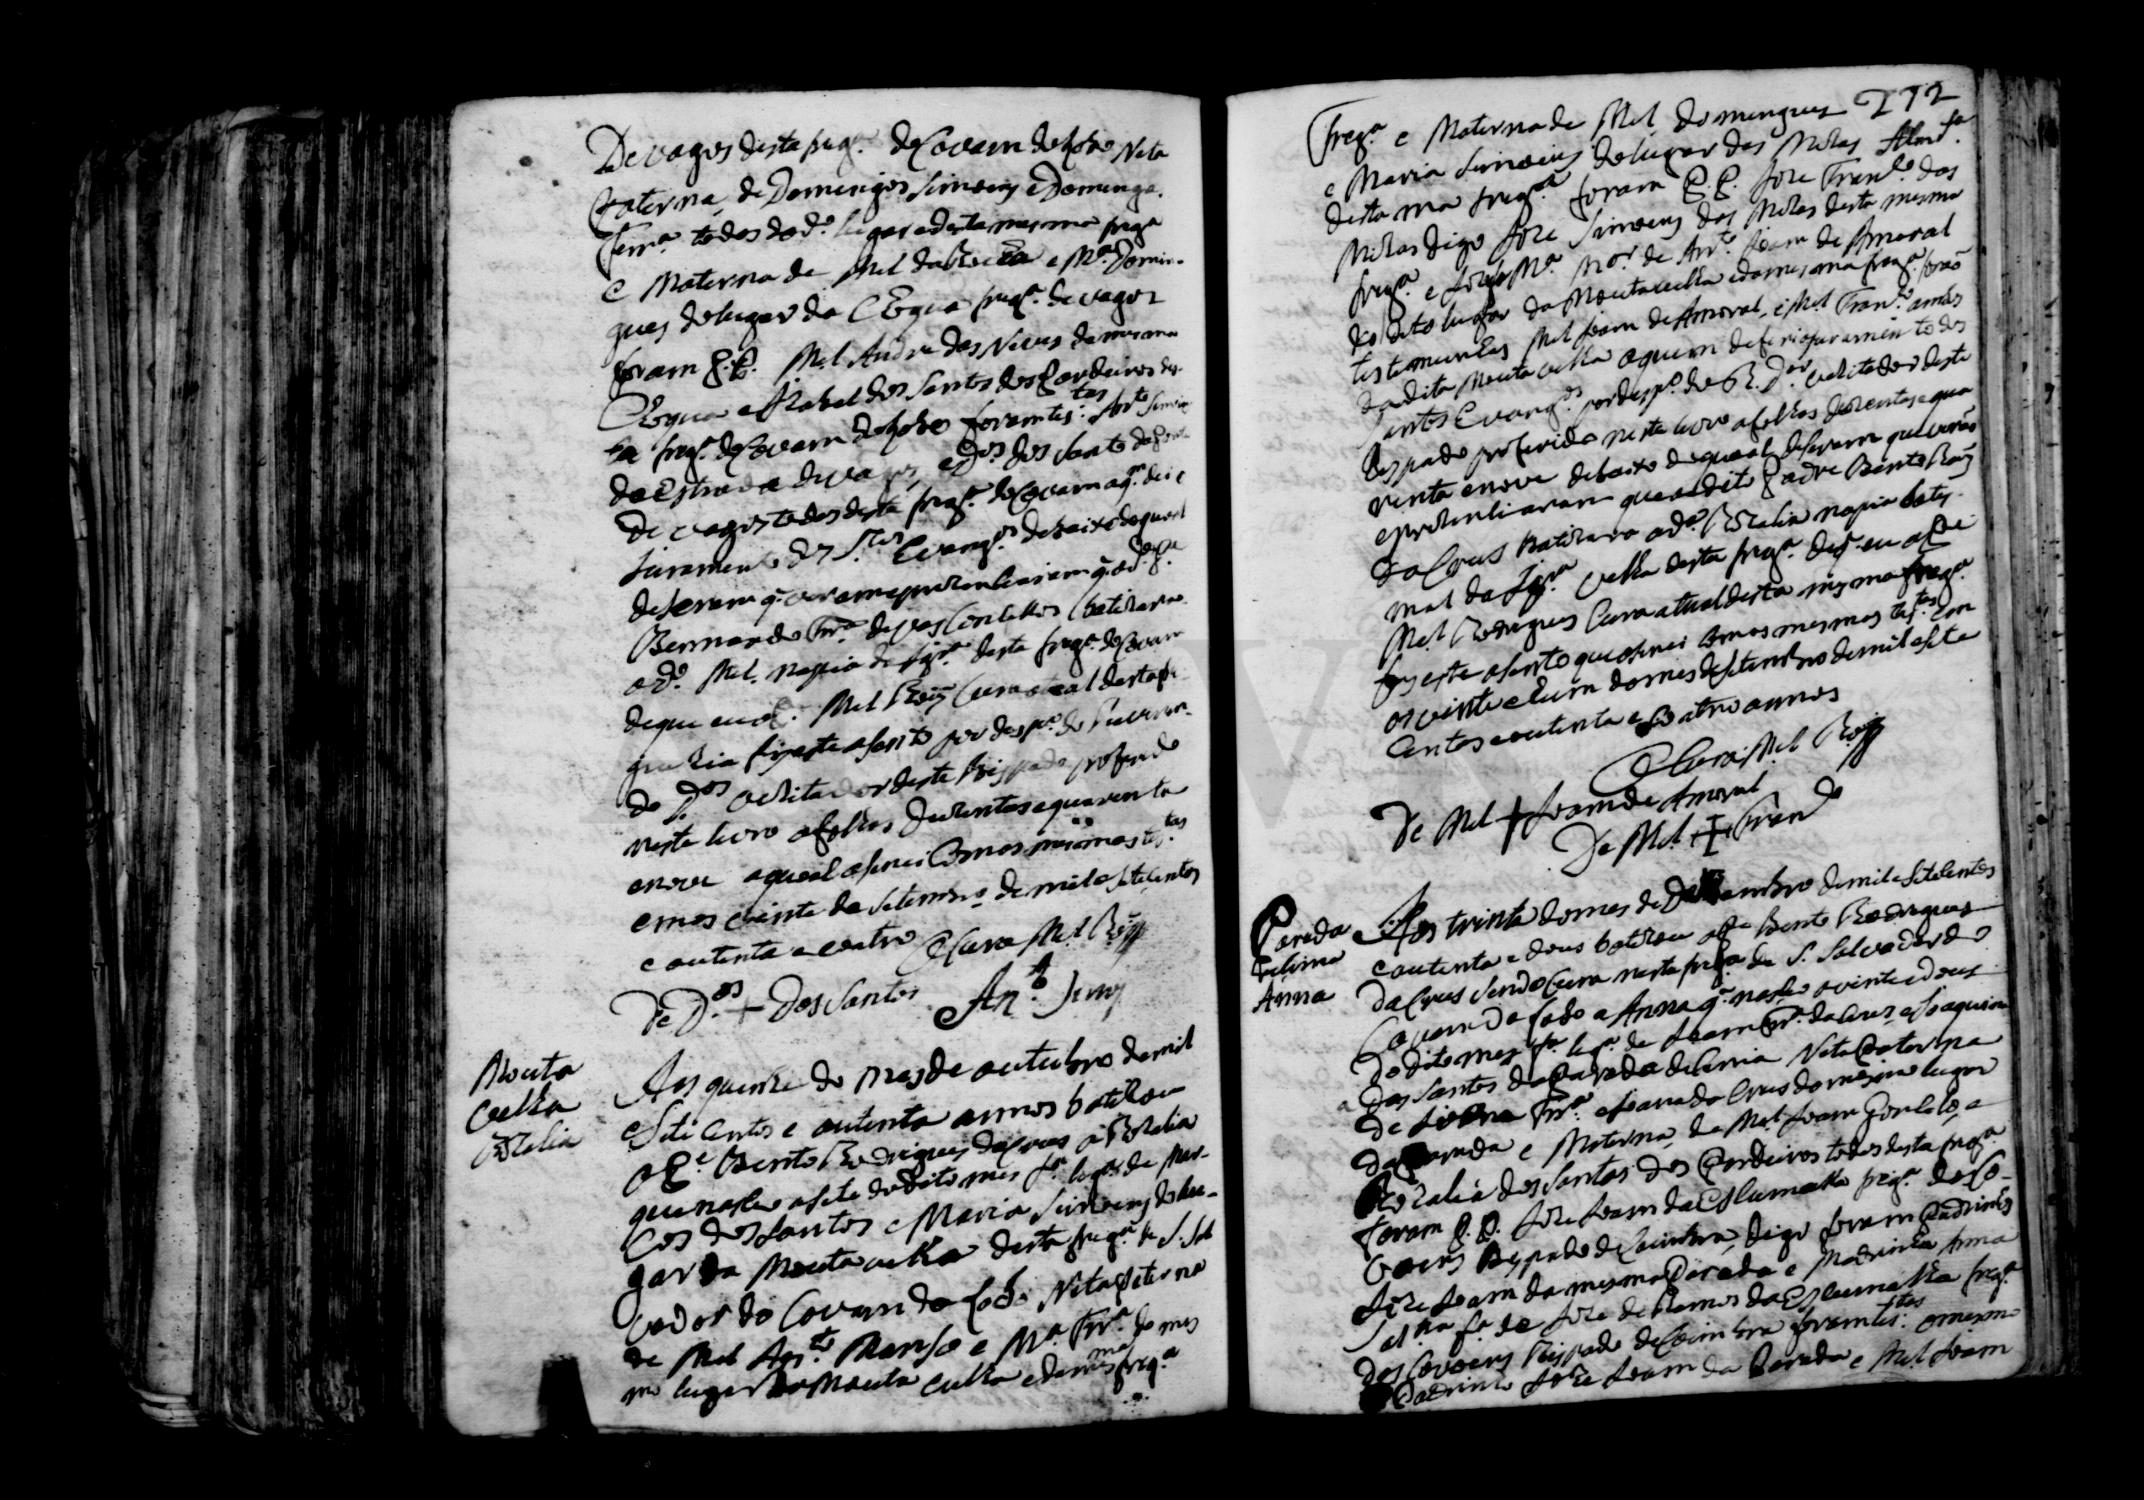 De vagos desta freg.ª do Covam do Lobo Neta
Paterna, de Domingos Simoens e Dominga
Ferr.ª todos do d.º lugar e desta mesma freg.ª
e Materna de Mel da Rocha e M.ª Domin-
gues do lugar da Legua freg.ª de vagos
foram P.P. Mel Andre das Neves da mesma
Legua e Izabel dos Santos dos Cardeiros des-
ta freg.ª do Covam do Lobo foram tes.tas Ant.º Simoi
da Estrada de vagos, e D.os dos Santo da
de vagos todos desta freg.ª do Covam a q.m dei o
Juramento dos S.tos Evang.os debaixo do qual
deseram q. veram e prezenciaram q. o d.º P.e
Bernardo Frr.ª de vas Conlellos batizara
ad.º Mel. na pia da Igr.ª desta freg.ª do Covam
de que eu o P.e Mel Roiz Cura atual desta fre
guezia fiz este asento por desp.º do Reveren-
do D.or vezitador deste Bispado proferido
neste livro a folhas duzentas e quarenta
e nove o qual asinei Com os mesmos tes.tas
em os vinte de Setembro de mil e setecentos
e outenta e coatro O Cura Mel Roiz
De D.os + dos Santos Ant.º Simoj
Mouta
velha
Rozalia
Aos quinze do mes de outubro de mil
e Sete Centos e outenta annos batizou
o P.e Bento Rodrigues da Crus a Rozalia
que nasceo a sete do dito mes f.ª leg.ª de Mar-
Cos dos Santos e Maria Simoens do lu-
gar da Mouta velha desta freg.ª de S. Sal
vador do Covam do Lobo Neta Paterna
de Mel Ant.º Manso e M.ª Frr.ª do mes
mo lugar da Mouta velha e da mesma freg.ª
272
freg.ª e Materna de Mel Domingues
e Maria Simoens do lugar das Mesas
desta ma freg.ª foram P.P. Joze Fran.co das
Mesas digo Joze Simoens das Mesas desta mesma
freg.ª e M.ª M.or de Ant.º Joam de Amaral
do dito lugar da Mouta velha e da mesma freg.ª forão
testemunhas Mel Joam de Amaral, e Mel Fran.co ambos
da dita Mouta velha a quem deferi o juramento dos
Santos Evang.os por desp.º do R. D.or vezitador deste
Bispado proferido neste livro a folhas duzentas e qua
renta e nove debaixo do qual deseram que virão
e prezenciaram que o dito Padre Bento Roiz
da Crus batizara ad.ª Rozalia na pia batis-
mal da Igr.ª velha desta freg.ª de q. eu o P.e
Mel Rodrigues Cura atual desta mesma freg.ª
fiz este asento que asinei Com os mesmos tes.tas em
os vinte e hum do mes de Setembro de mil e sete
Centos e outenta e coatro annos
O Cura Mel Roiz
De Mel + Joam de Amaral
De Mel + Fran.co
Parada
de Sima
Anna
Aos trinta do mes de Dezembro de mil e Setecentos
e outenta e dous batizou o P.e Bento Rodrigues
da Crus Sendo Cura nesta freg.ª de S. Salvador do
Covam do Lobo a Anna q. nasceo a vinte e dous
do dito mes f.ª leg.ª de Joam Frr.ª da Cruz e Joaquina
dos Santos da Parada de Sima Neta Paterna
de Frr.ª e Joana da Crus do mesmo lugar
da Parada e Materna, de Mel Joam Gonsalo, e
Rozalia dos Santos dos Cardeiros todos desta freg.ª
foram P.P. Joze Joam da EsCumalha freg.ª do Co-
voens Bispado de Coimbra, digo foram Padrinhos
Joze Joam da mesma Parada e Madrinha Anna
Solt.ra f.ª de Joze de Ramos da EsCumalha freg.ª
dos Covoens Bispado de Coimbra foram tes.tas o mesmo
Padrinho Joze Joam da Parada e Mel Joam